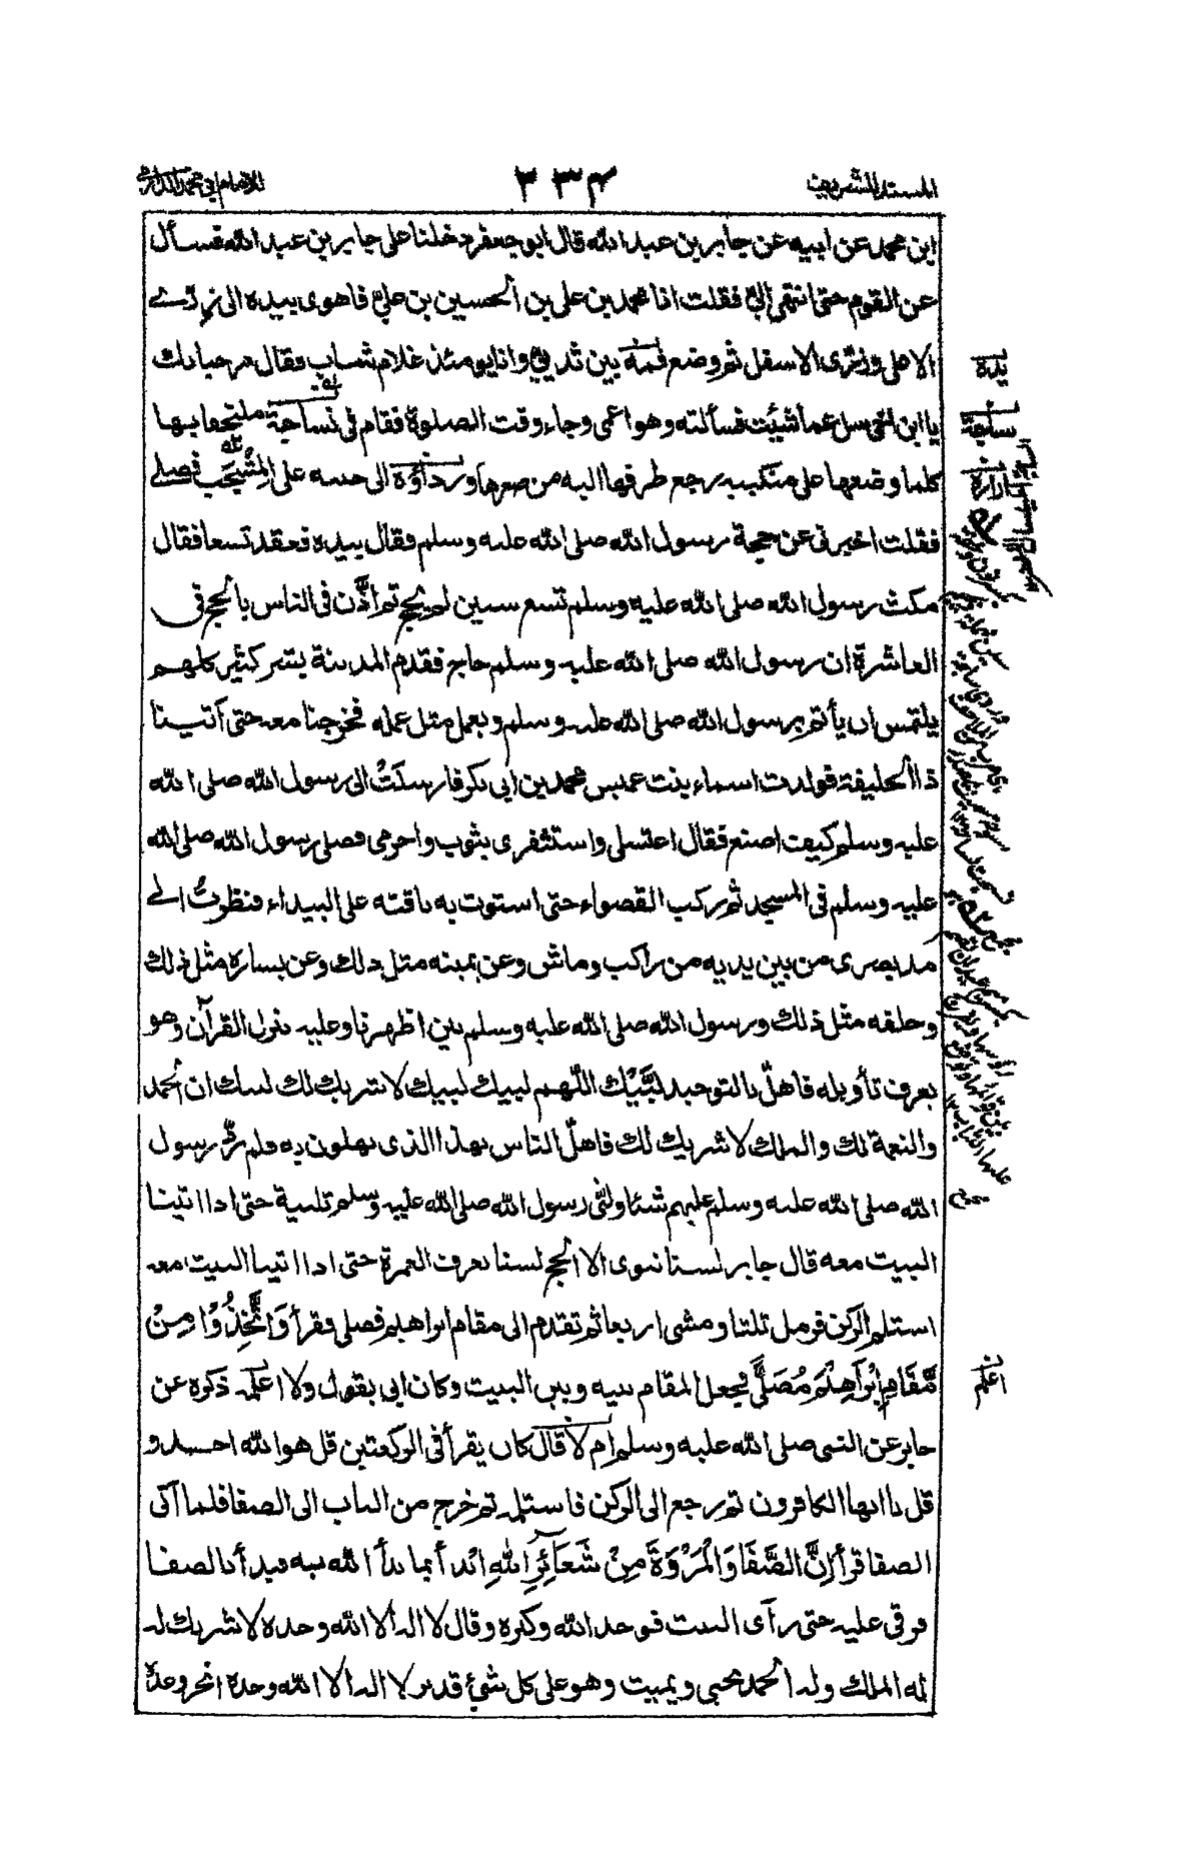 المسند الشريف
٢٣٤
للامام ابي محمد الدارمي
ابن محمد عن ابيه عن جابر بن عبد الله قال ابو جعفر دخلنا على جابر بن عبد الله فسأل
عن القوم حتى انتهى اليّ فقلت انا محمد بن علي بن الحسين بن علي فاهوى بيده الى زرّي
الاعلى وزرّى الاسفل ثم وضع فمه بين ثدييّ وانا يومئذ غلام شاب وقال مرحبا بك
يا ابن اخي سل عما شئت فسألته وهو اعمى وجاء وقت الصلوة فقام في نساجة ملتحفا بها
كلما وضعها على منكبيه رجع طرفها اليه من صغرها ورداؤه الى جنبه على المشجب فصلى
فقلت اخبرنى عن حجة رسول الله صلى الله عليه وسلم فقال بيده فعقد تسعا فقال
مكث رسول الله صلى الله عليه وسلم تسع سنين لم يحج ثم اذّن فى الناس بالحج فى
العاشرة ان رسول الله صلى الله عليه وسلم حاج فقدم المدينة بشر كثير كلهم
يلتمس ان يأتم برسول الله صلى الله عليه وسلم ويعمل مثل عمله فخرجنا معه حتى اتينا
ذا الحليفة فولدت اسماء بنت عميس محمد بن ابي بكر فارسلتْ الى رسول الله صلى الله
عليه وسلم كيف اصنع فقال اغتسلي واستثفرى بثوب واحرمي فصلى رسول الله صلى الله
عليه وسلم فى المسجد ثم ركب القصواء حتى استوت به ناقته على البيداء فنظرتُ الى
مد بصرى من بين يديه من راكب وماش وعن يمينه مثل ذلك وعن يساره مثل ذلك
وخلفه مثل ذلك ورسول الله صلى الله عليه وسلم بين اظهرنا وعليه ينزل القرآن وهو
يعرف تأويله فاهلّ بالتوحيد لبّيك اللّهم لبيك لبيك لا شريك لك لبيك ان الحمد
والنعمة لك والملك لا شريك لك فاهلّ الناس بهذا الذى يهلون به فلم يردّ رسول
الله صلى الله عليه وسلم عليهم شيئا ولبّى رسول الله صلى الله عليه وسلم تلبية حتى اذا اتينا
البيت معه قال جابر لسنا ننوى الا الحج لسنا نعرف العمرة حتى اذا اتينا البيت معه
استلم الركن فرمل ثلثا ومشى اربعا ثم تقدم الى مقام ابراهيم فصلى وقرأ وَاتَّخِذُوْا مِنْ
مَّقَامِ اِبْرَاهِيْمَ مُصَلًّى فجعل المقام بينه وبين البيت وكان ابي يقول ولا اعلمه ذكره عن
جابر عن النبي صلى الله عليه وسلم ام لا قال كان يقرأ فى الركعتين قل هو الله احد و
قل يا ايها الكافرون ثم رجع الى الركن فاستلمه ثم خرج من الباب الى الصفا فلما اتى
الصفا قرأ اِنَّ الصَّفَا وَالْمَرْوَةَ مِنْ شَعَائِرِ اللهِ ابدأ بما بدأ الله به فبدأ بالصفا
فرقى عليه حتى رآى البيت فوحد الله وكبره وقال لا اله الا الله وحده لا شريك له
له الملك وله الحمد يحيى ويميت وهو على كل شيء قدير لا اله الا الله وحده انجز وعده
يده
ساجة
اعلم